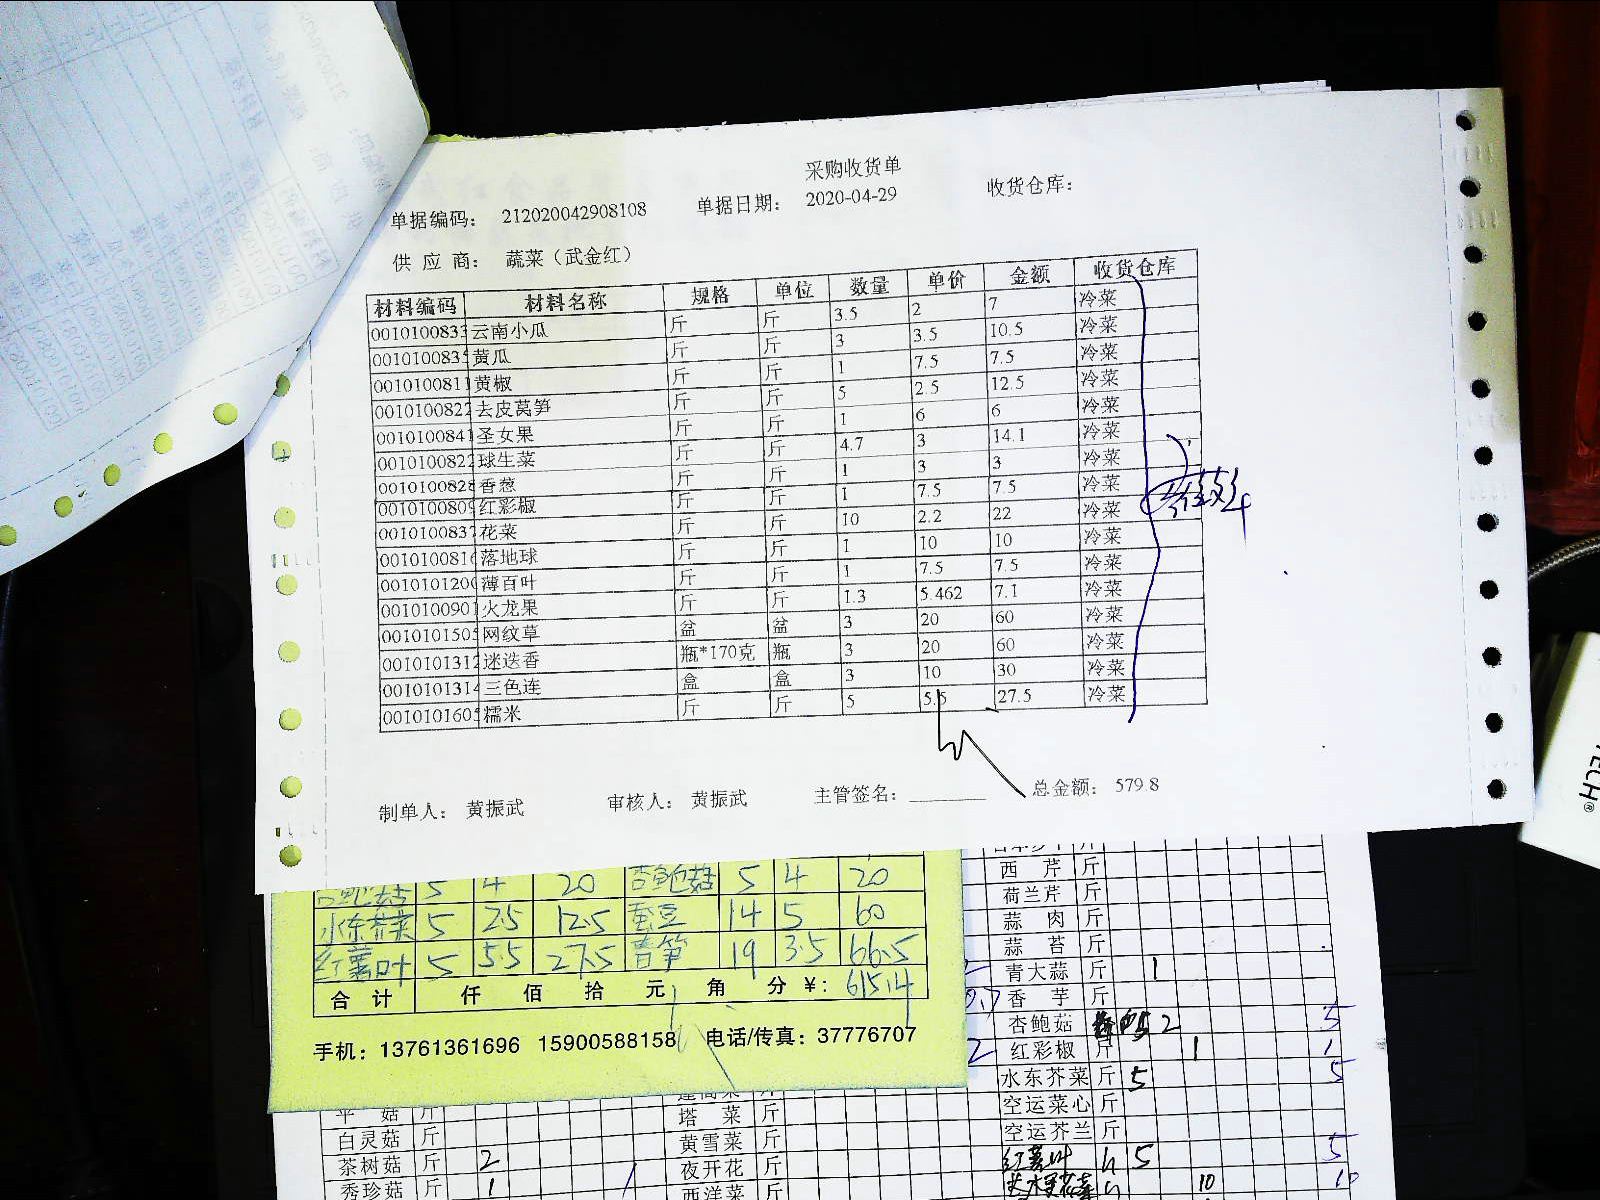 采购收货单
单据编码： 212020042908108 单据日期： 2020-04-29 收货仓库：
供 应 商： 蔬菜（武金红）
材料编码 材料名称 规格 单位 数量 单价 金额 收货仓库
0010100833 云南小瓜 斤 斤 3.5 2 7 冷菜
001010083 黄瓜 斤 斤 3 3.5 10.5 冷菜
0010100811 黄椒 斤 斤 1 7.5 7.5 冷菜
0010100822 去皮莴笋 斤 斤 5 2.5 12.5 冷菜
0010100841 圣女果 斤 斤 1 6 6 冷菜
0010100822 球生菜 斤 斤 4.7 3 14.1 冷菜
0010100828 香葱 斤 斤 1 3 3 冷菜
0010100809 红彩椒 斤 斤 1 7.5 7.5 冷菜
0010100837 花菜 斤 斤 10 2.2 22 冷菜
001010081 落地球 斤 斤 1 10 10 冷菜
001010120 薄百叶 斤 斤 1 7.5 7.5 冷菜
0010100901 火龙果 斤 斤 1.3 5.462 7.1 冷菜
0010101505 网纹草 盆 盆 3 20 60 冷菜
0010101312 迷迭香 瓶*170克 瓶 3 20 60 冷菜
0010101314 三色连 盒 盒 3 10 30 冷菜
001010160 糯米 斤 斤 5 5.5 27.5 冷菜
制单人： 黄振武 审核人： 黄振武 主管签名： 总金额： 579.8
杏鲍菇 5 4 20 杏鲍菇 5 4 20
水东芥菜 5 25 12.5 蚕豆 14 5 60
红薯叶 5 5.5 27.5 春笋 19 3.5 66.5
合 计 仟 佰 拾 元 角 分 ¥： 615.4
手机：13761361696 15900588158 电话/传真：37776707
西 芹 斤
荷兰芹 斤
蒜 肉 斤
蒜 苔 斤
青大蒜 斤 1
香 芋 斤
杏鲍菇 5 2 5
红彩椒 斤 1 1
水东芥菜 斤 5 5
平 菇 斤 塔 菜 斤 空运菜心 斤
白灵菇 斤 黄雪菜 斤 空运芥兰 斤
茶树菇 斤 2 夜开花 斤 红薯叶 5 5
秀珍菇 斤 1 西洋菜 斤 10 10